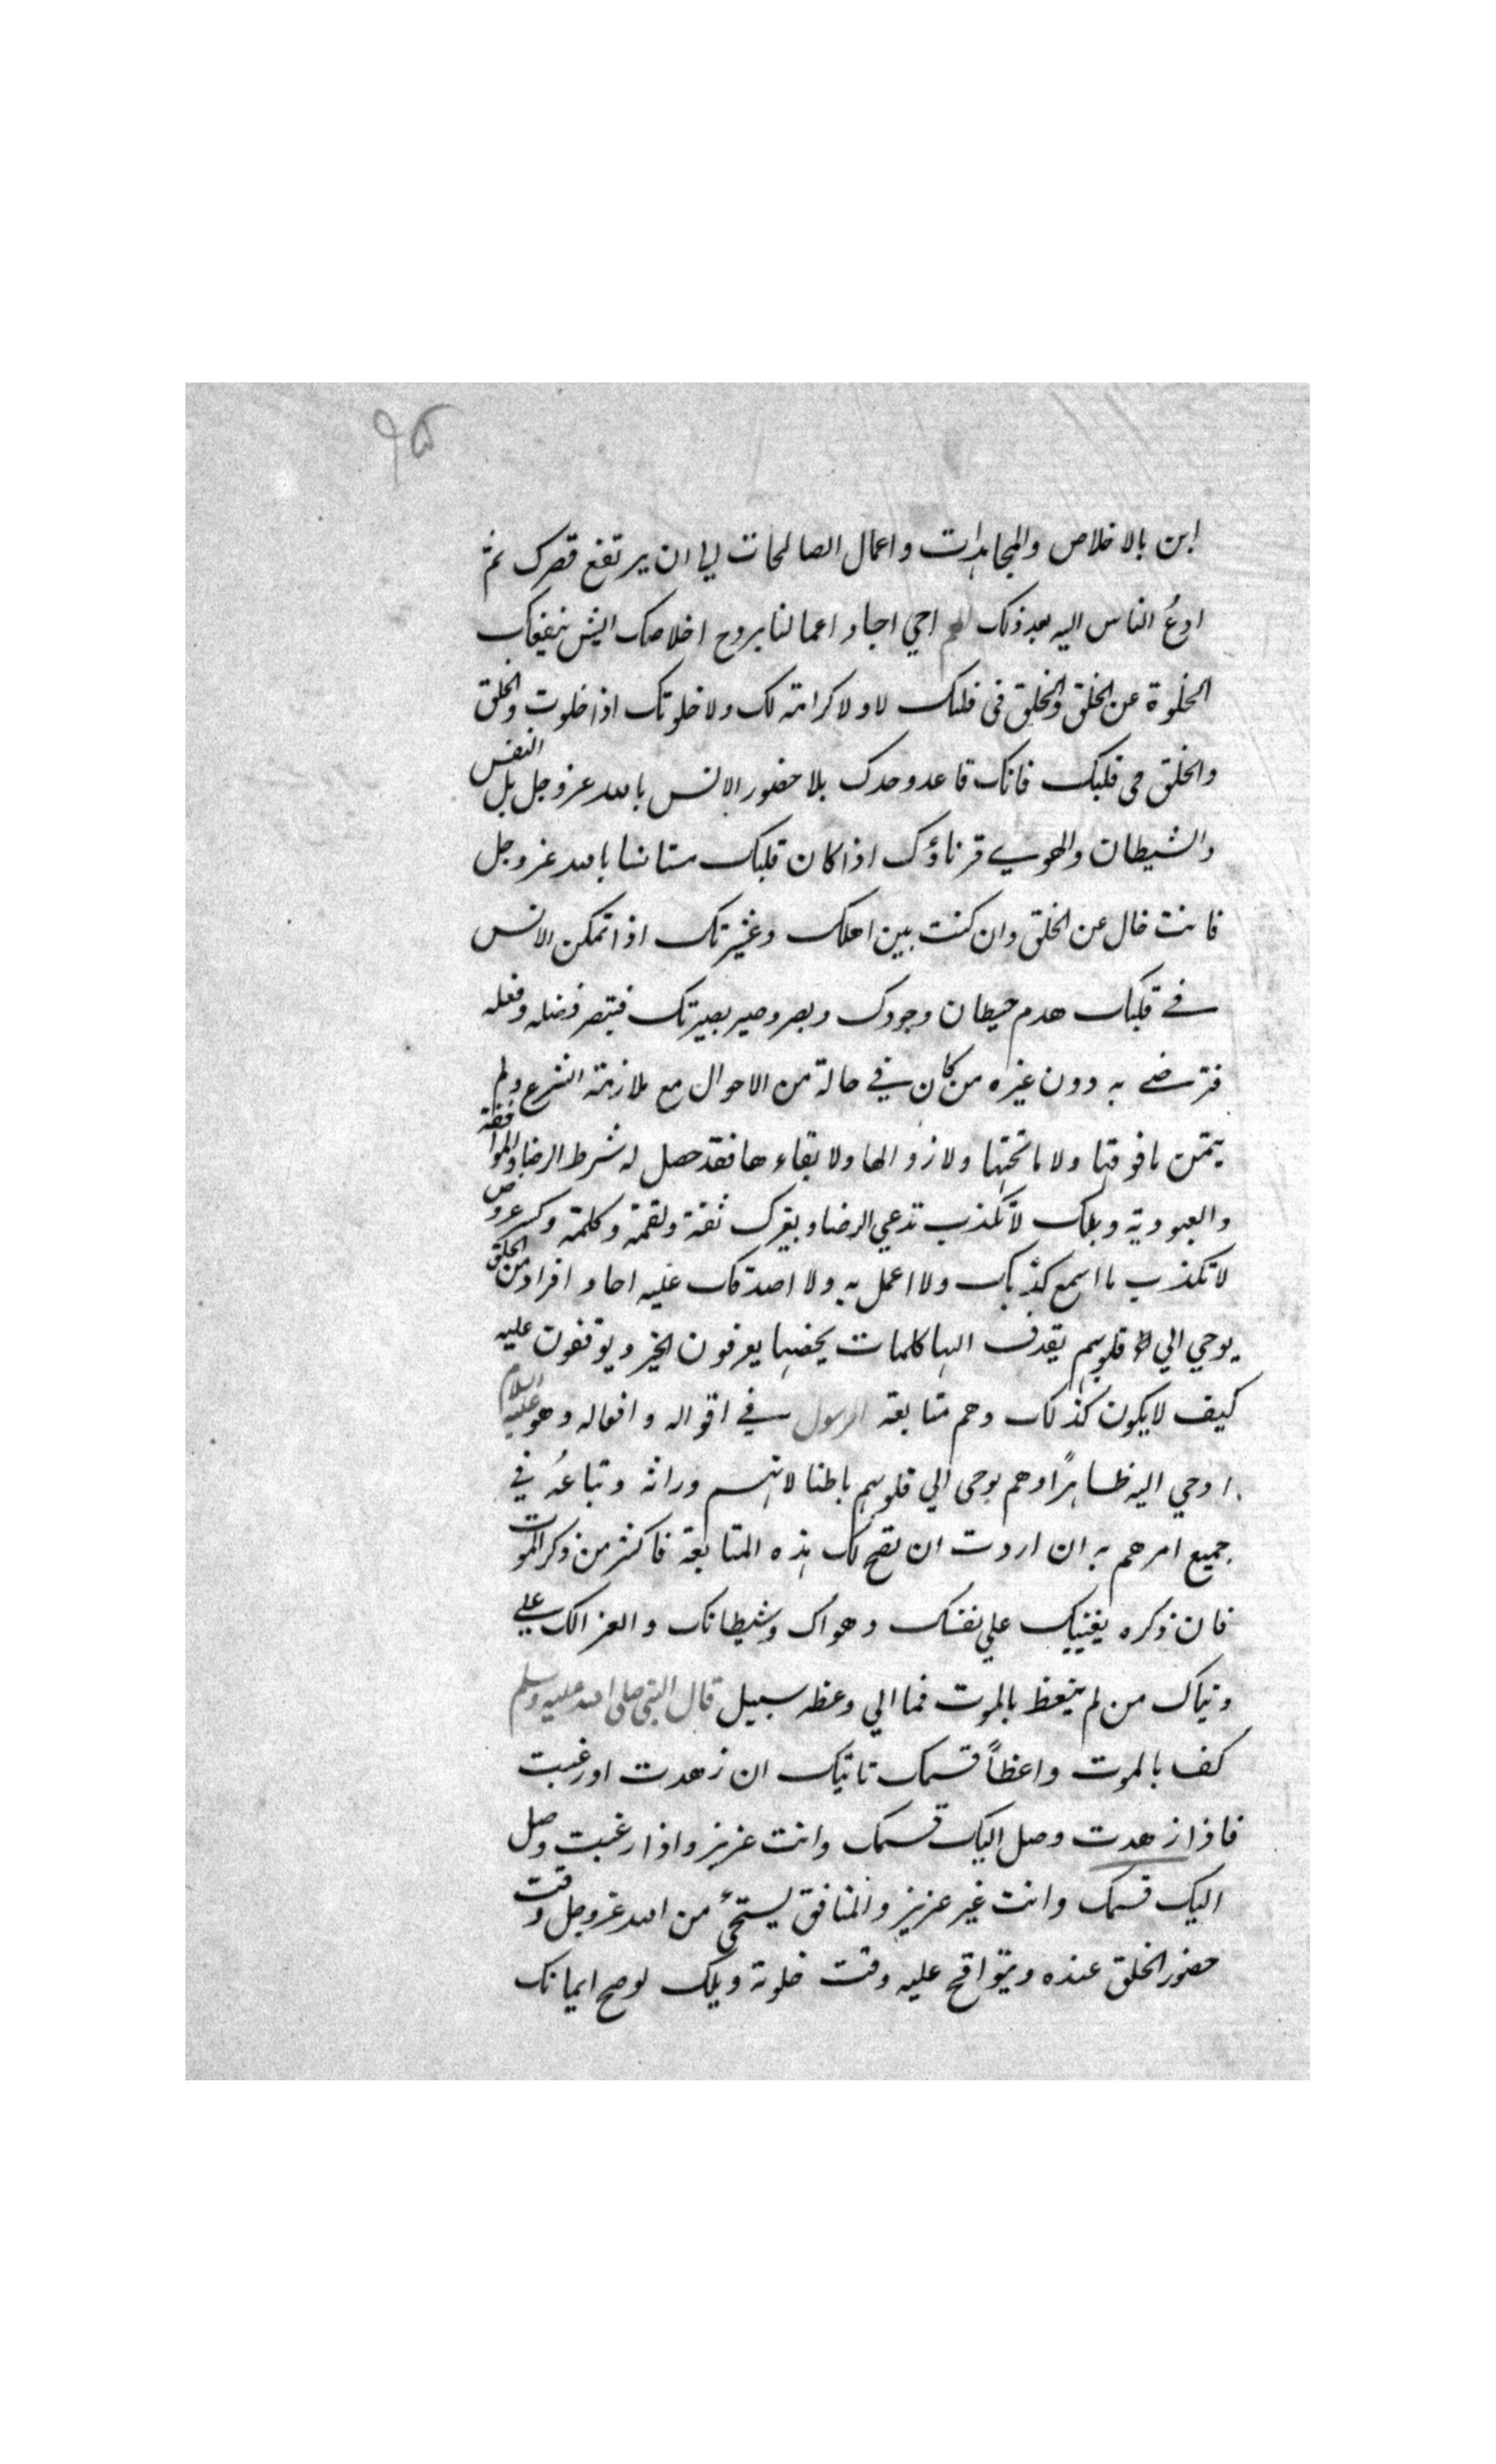 ٩٥
ابن بالاخلاص والمجاهدات واعمال الصالحات الي ان يرتفع قصرك ثم
ادعُ الناس اليه بعد ذلك احي اجساد اعمالنا بروح اخلاصك ايش ينفعك
الخلوة عن الخلق والخلق في قلبك لا ولا كرامة لك ولا خلوتك اذا خلوت والخلق
والخلق في قلبك فانك قاعد وحدك بلا حضور الانس بالله عز وجل بل النفس
والشيطان والهوي قرناؤك اذا كان قلبك مستانسا بالله عز وجل
فانت خال عن الخلق وان كنت بين اهلك وعشيرتك اذا تمكن الانس
في قلبك هدم حيطان وجودك وبصر بصيرتك فيبصر فضله وفعله
فترضي به دون غيره من كان في حالة من الاحوال مع ملازمة الشرع ولم
يتمن ما فوقها ولا ما تحتها ولا زوالها ولا بقاءها فقد حصل له شرط الرضا والموافقة
والعبودية ويلك لا تكذب تدعي الرضا ويغيرك ولقمة وكلمة وكسر
لا تكذب ما اسمع كذبك ولا اعمل به ولا اصدقك عليه احاد افراد من الخلق
يوحي الي قلوبهم يقذف اليها كلمات يخصها يعرفون الخير ويوقفون عليه
كيف لا يكون كذلك وهم متابعة الرسول في اقواله وافعاله وهو عليه السلام
اوحي اليه ظاهرًا وهم يوحي الي قلوبهم باطنا لانهم وراثه وتباعُه في
جميع امرهم به ان اردت ان تصح لك هذه المتابعة فاكثر من ذكر الموت
فان ذكره يغنيك علي نفسك وهواك وشيطانك والعزالك علي
دنياك من لم يتعظ بالموت فما الي وعظه سبيل قال النبي صلى الله عليه وسلم
كف بالموت واعظاً قسمك تاتيك ان زهدت او رغبت
فاذا زهدت وصل اليك قسمك وانت عزيز واذا رغبت وصل
اليك قسمك وانت غير عزيز والمنافق يستحئ من الله عز وجل وقت
حضور الخلق عنده ويتواقح عليه وقت خلوته ويلك لو صح ايمانك